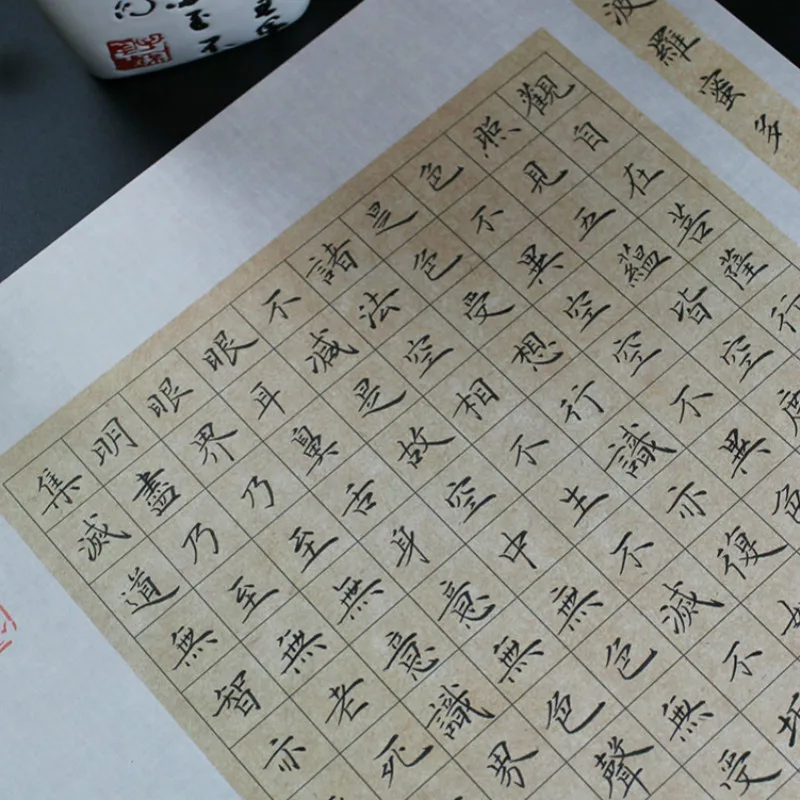 波羅蜜多
觀自在菩薩行
照見五蘊皆空度
色不異空空不異色
是色受想行識亦復如
諸法空相不生不滅不垢
不減是故空中無色無受
眼耳鼻舌身意無色聲
眼界乃至無意識界
明盡乃至無老死
集滅道無智亦